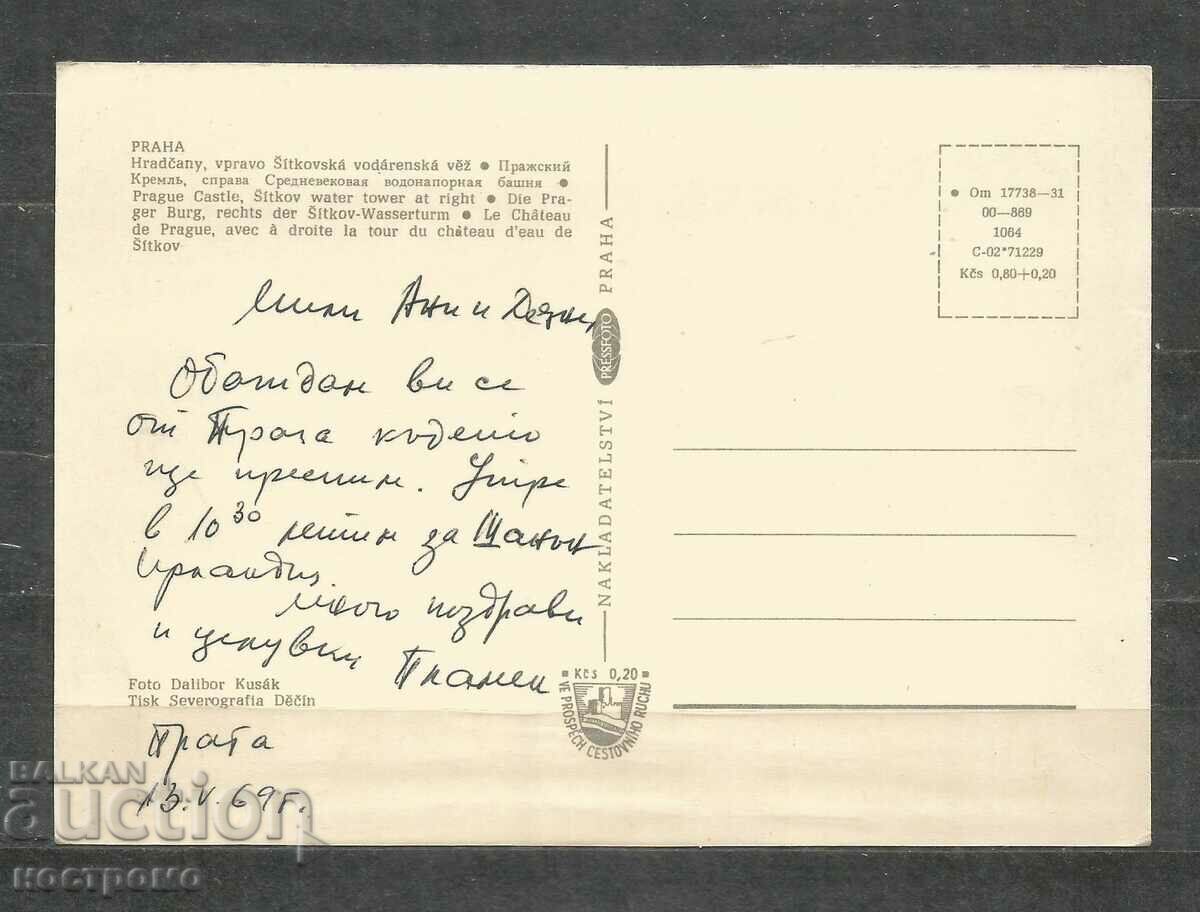 PRAHA
Hradčany, vpravo Šítkovská vodárenská věž ● Пражский
Кремль, справа Средневековая водонапорная башня ●
Prague Castle, Šítkov water tower at right ● Die Pra-
ger Burg, rechts der Šítkov-Wasserturm ● Le Château
de Prague, avec à droite la tour du château d'eau de
Šítkov
Мили Ани и
Обаждам ви се
от Прага където
ще преспим. Утре
в 10 30 летим за Шанън
Ирландия.
Много поздрави
и целувки Пламен
Foto Dalibor Kusák
Tisk Severografia Děčín
Прага
13.V.69г.
NAKLADATELSTVÍ PRESSFOTO PRAHA
Kčs 0,20
VE PROSPĚCH CESTOVNÍHO RUCHU
● Om 17738—31
00—869
1064
C-02*71229
Kčs 0,80+0,20
BALKAN
auction
костромо